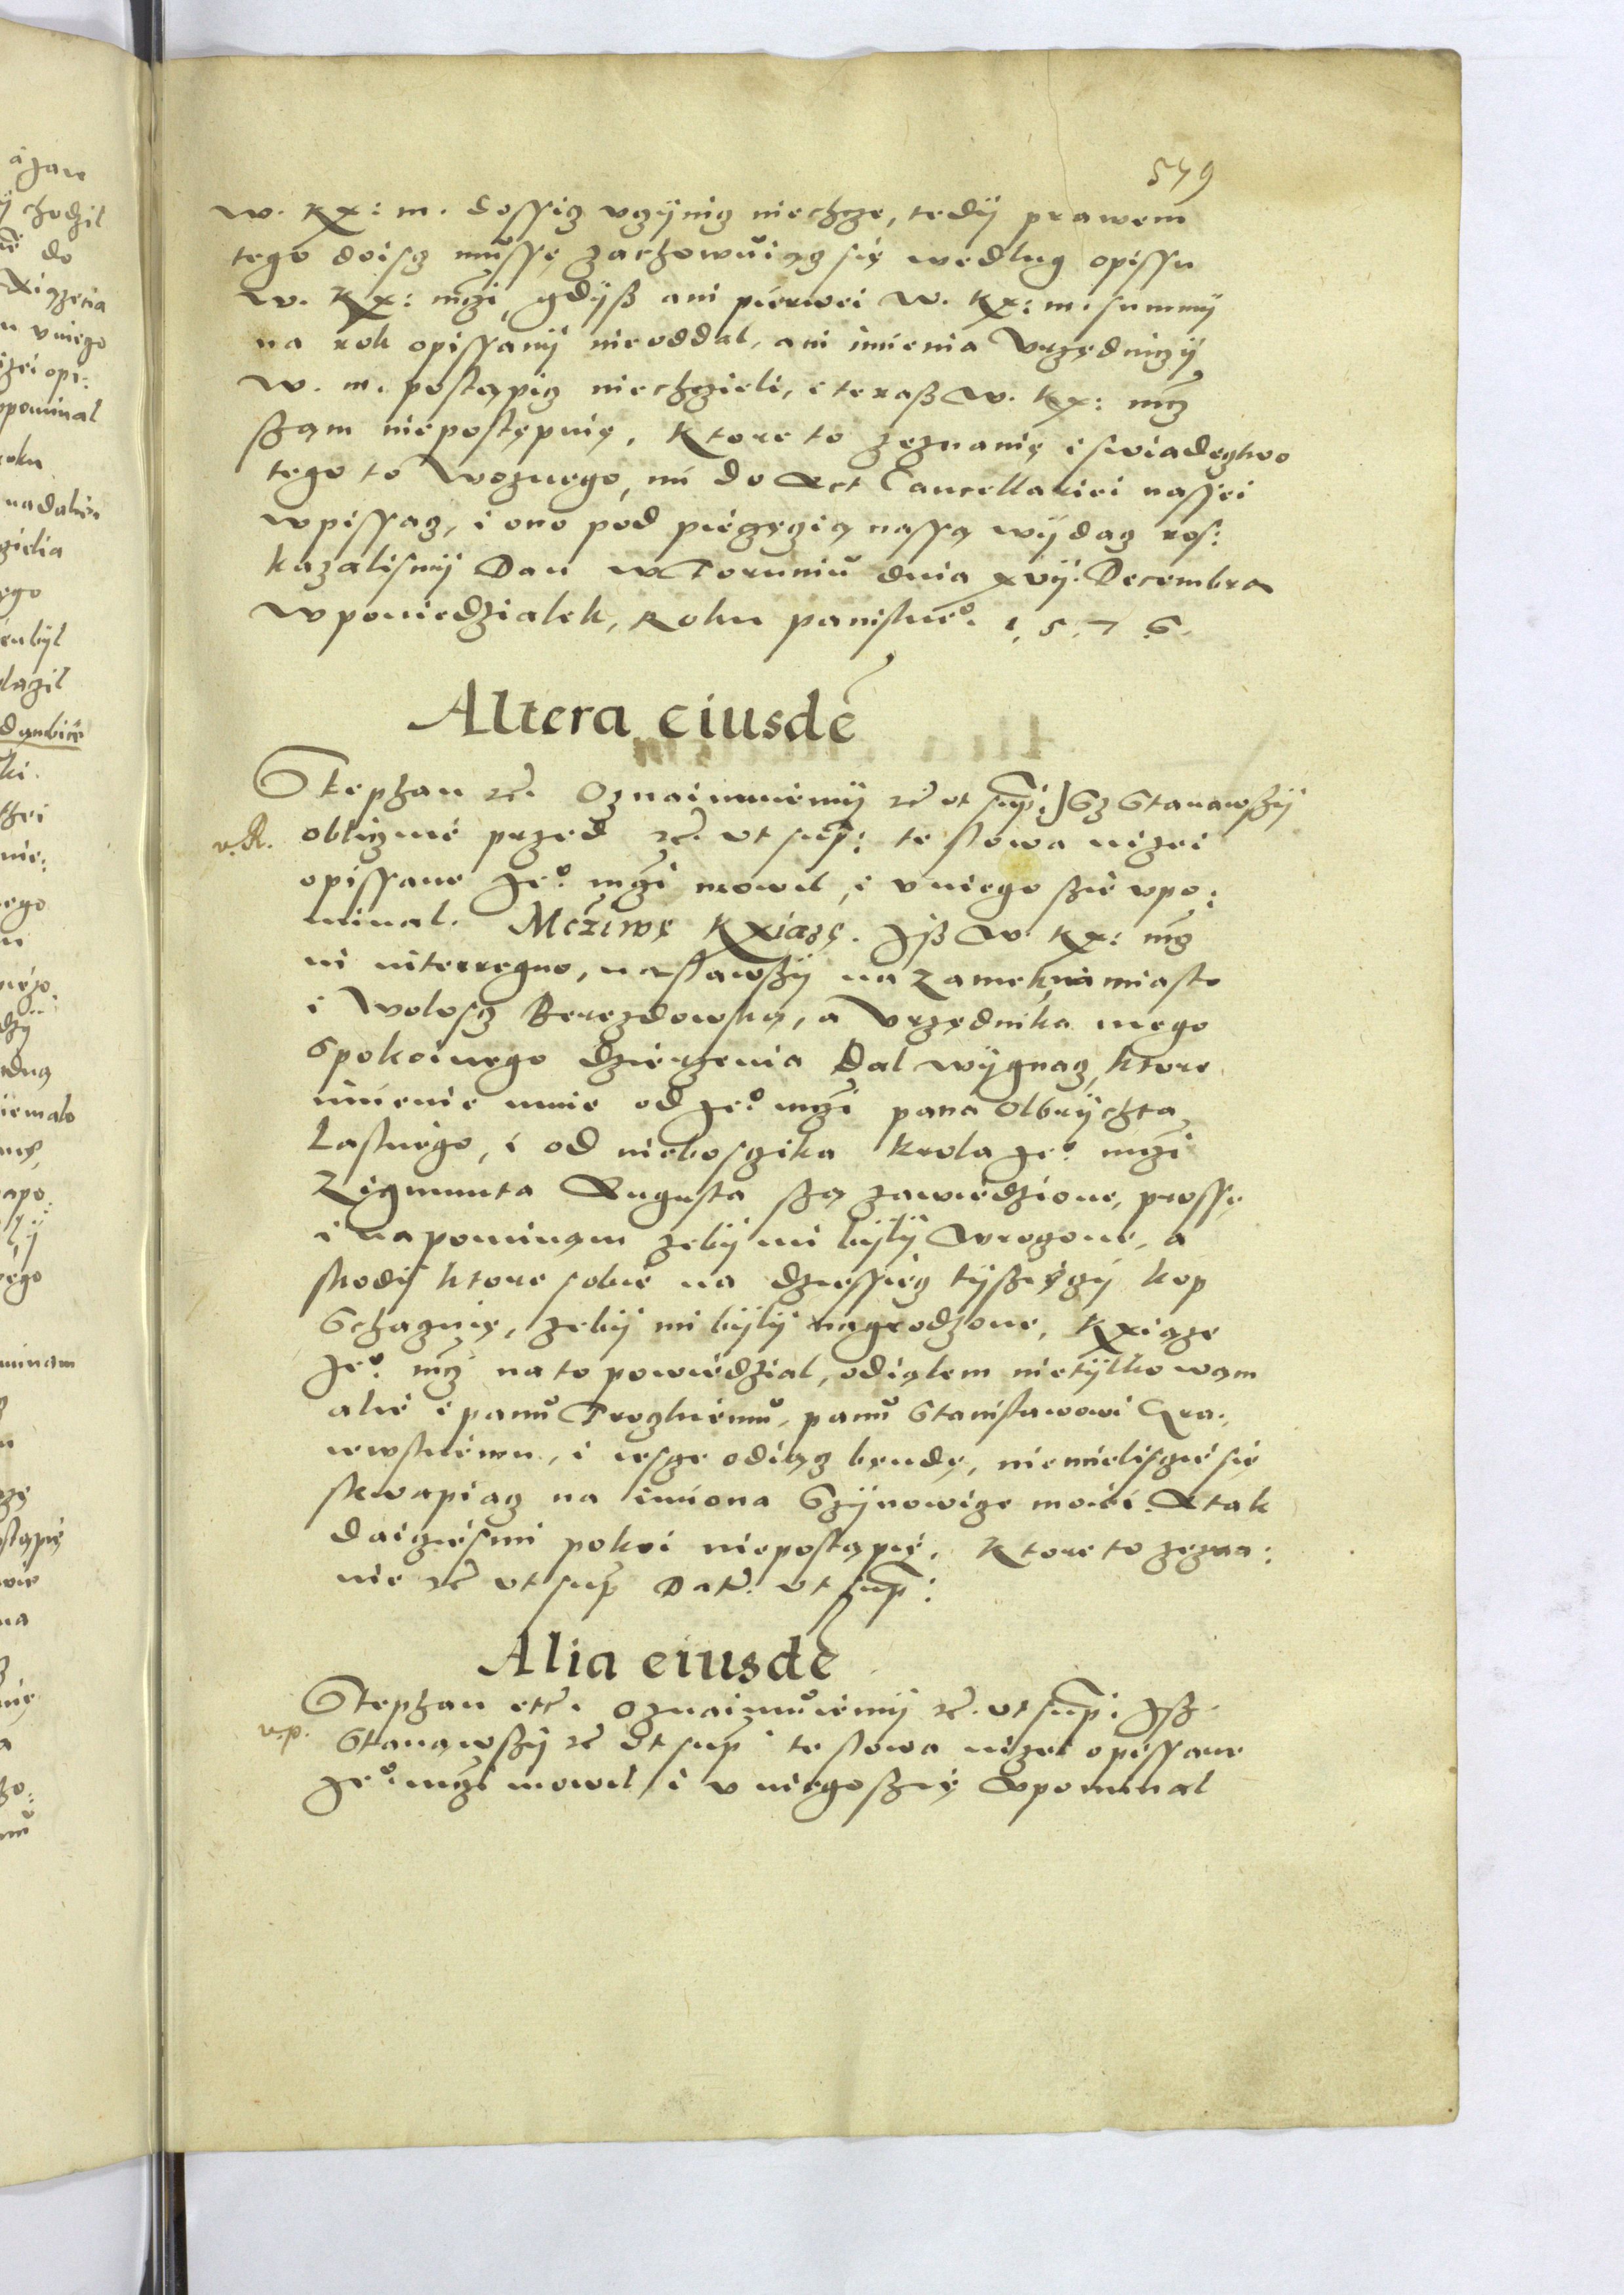 549
w. Kx: m. dossicz vczÿnicz niechcze, tedÿ prawem
tego doiscz mussę zachowuiącz się wedlug opissu
w. Kx: mczi, gdÿß ani pierwei w. Kx: m. summÿ
na rok opissanÿ nieoddal, ani imienia Vrzędniczÿ
w. m. postąpicz niechczieli, i teraß w. Kx: mcz
szam niepostępuię, Ktore to zeznanię i swiadecztwo
tego to Woznego, mi do Act Cancellariei nassei
wpissacz, i ono pod pieczęczią nassą wÿdacz ros:
kazalismÿ Dan w Toruniu dnia xvij. Decembra
w poniedzialek, Roku panskie°. 1.5.7.6.
Altera eiusdē
Stephan etc. Oznaimuiemÿ etc ut sup: Gz Stanawßÿ
v.R. oblicznie przed etc. ut sup: te slowa nizei
opissane Je° mczi mowil, i v niego szie vpo:
minal. Mcziwę Kxiązę. Jß W. Kx: mcz
in interregno, naslawßÿ na Zamek, na miasto
i Wolosz Berezdowską, a Vrzędnika mego
Spokoinego dzierzenia dal wÿgnacz, ktore
imienie mnie od Je° mczi pana Olbrÿchta
Laskiego, i od nieboszika Krola Je° mczi
Zigmunta Augusta szą zawiedzione, prosse
i napominam zebÿ mi bÿlÿ wroczone, a
skodÿ ktore sobie na dziessiecz tÿsięczÿ kop
Schacuię, zebÿ mi bÿlÿ nagrodzone, Kxiąze
Je° mcz na to powiedzial, odialem nietÿlko wam
alie i panu Troczkiemu, panu Stanislawowi Gra:
iewskiemu, i iescze odiącz bendę, niemieliscie się
skwapiacz na imiona Sczÿnowicze moiei. A tak
daicziesmi pokoi niepostąpię. Ktore to zezna:
nie etc ut sup Dat. ut sup:
Alia eiusdē
Stephan etc. Oznaimuiemÿ etc. ut sup: Jß
v.p. Stanawßÿ etc ut sup te slowa nizei opissane
Je° mczi mowil i v niego szię Vpominal